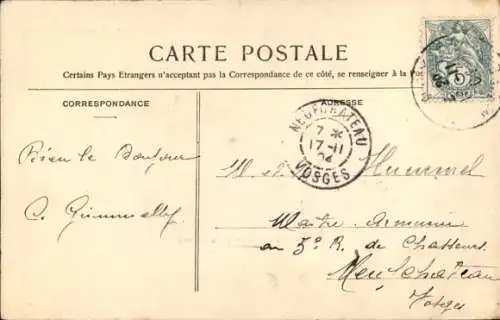 CARTE POSTALE
Certains Pays Etrangers n'acceptant pas la Correspondance de ce côté, se renseigner à la Po
CORRESPONDANCE
ADRESSE
NEUFCHATEAU
7 *
17-11
04
VOSGES
Bien le Bonjour
M. et Hummel
C.
Maître Armurier
au R. de Chasseurs
Neufchateau
Vosges